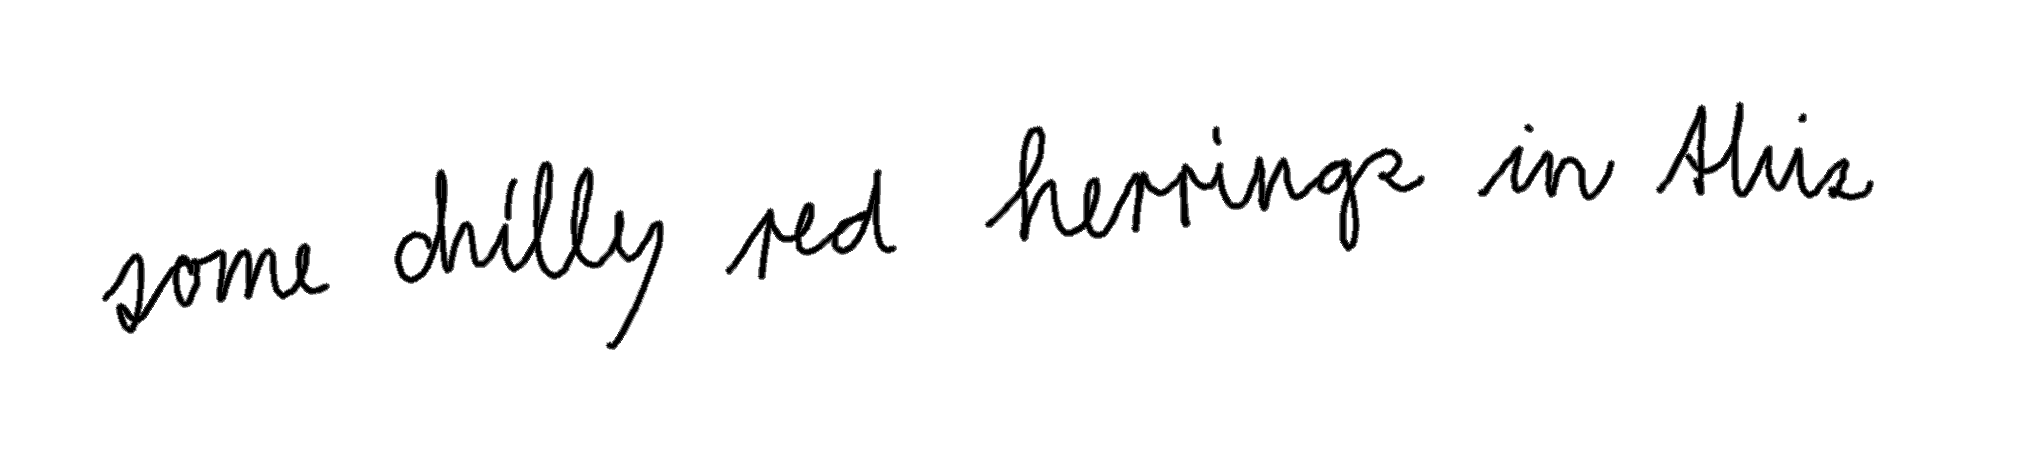 some chilly red herrings in this